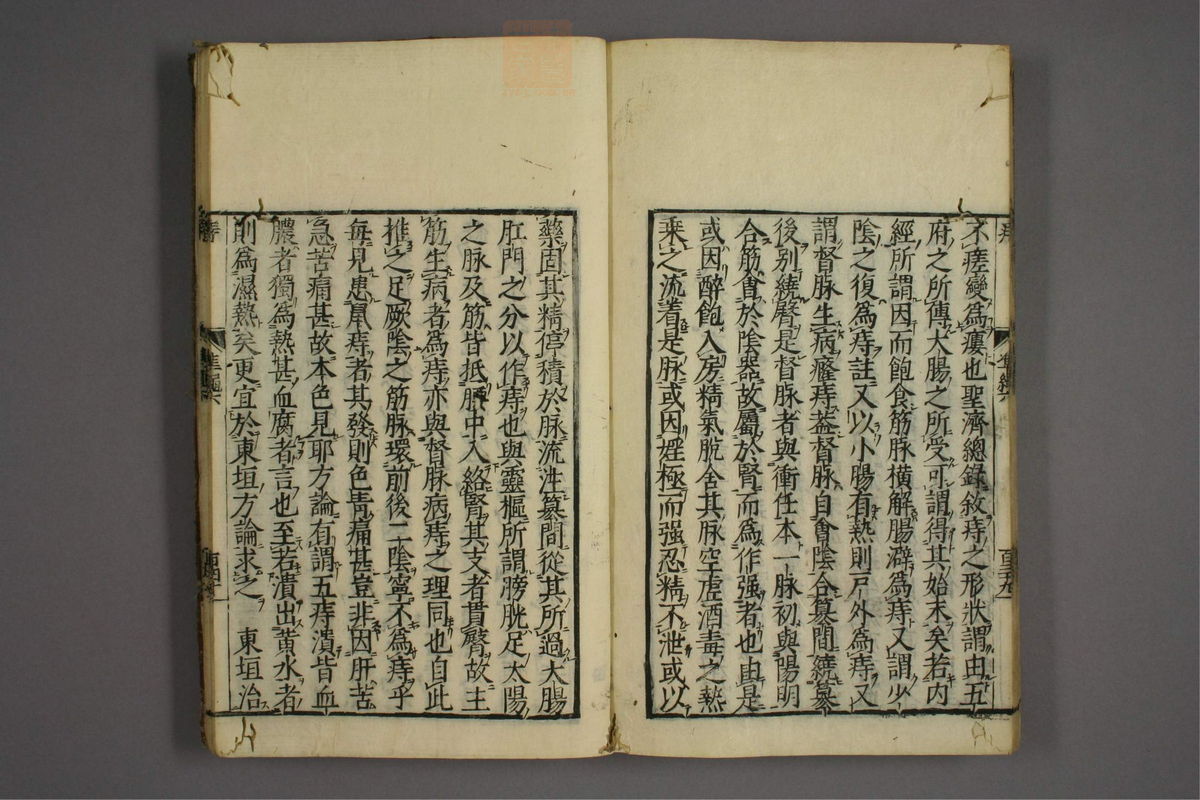 不瘥變爲瘻也聖濟總錄敘痔之形狀謂由五
府之所傳大腸之所受可謂得其始末矣若内
經所謂因而飽食筋脉橫解腸澼爲痔又謂少
陰之復爲痔註又以小腸有熱則戶外爲痔又
謂督脉生病癃痔蓋督脉自會陰合篡間繞篡
後别繞臀是督脉者與衝任本一脉初與陽明
合筋會於陰器故屬於腎而爲作强者也由是
或因醉飽入房精氣脫舍其脉空虛酒毒之熱
乘之流着是脉或因婬極而强忍精不泄或以
藥固其精停積於脉流注篡間從其所過大腸
肛門之分以作痔也與靈樞所謂膀胱足太陽
之脉及筋皆抵腰中入絡腎其支者貫臀故主
筋生病者爲痔亦與督脉病痔之理同也自此
推之足厥陰之筋脉環前後二陰寧不爲痔乎
每見患鼠痔者其發則色靑痛甚豈非因肝苦
急苦痛甚故本色見耶方論有謂五痔潰皆血
膿者獨爲熱甚血腐者言也至若潰出黃水者
則爲濕熱矣更宜於東垣方論求之　東垣治
痔